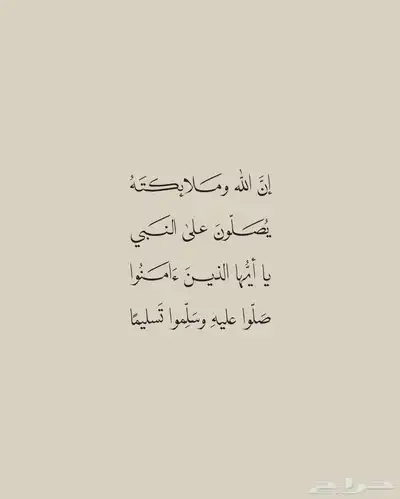 إنَّ الله ومَلايكتَهُ
يُصَلّونَ علىٰ النَبي
يا أيُّها الذينَ ءَامَنُوا
صَلّوا عليهِ وسَلِّموا تَسليمًا
حراج